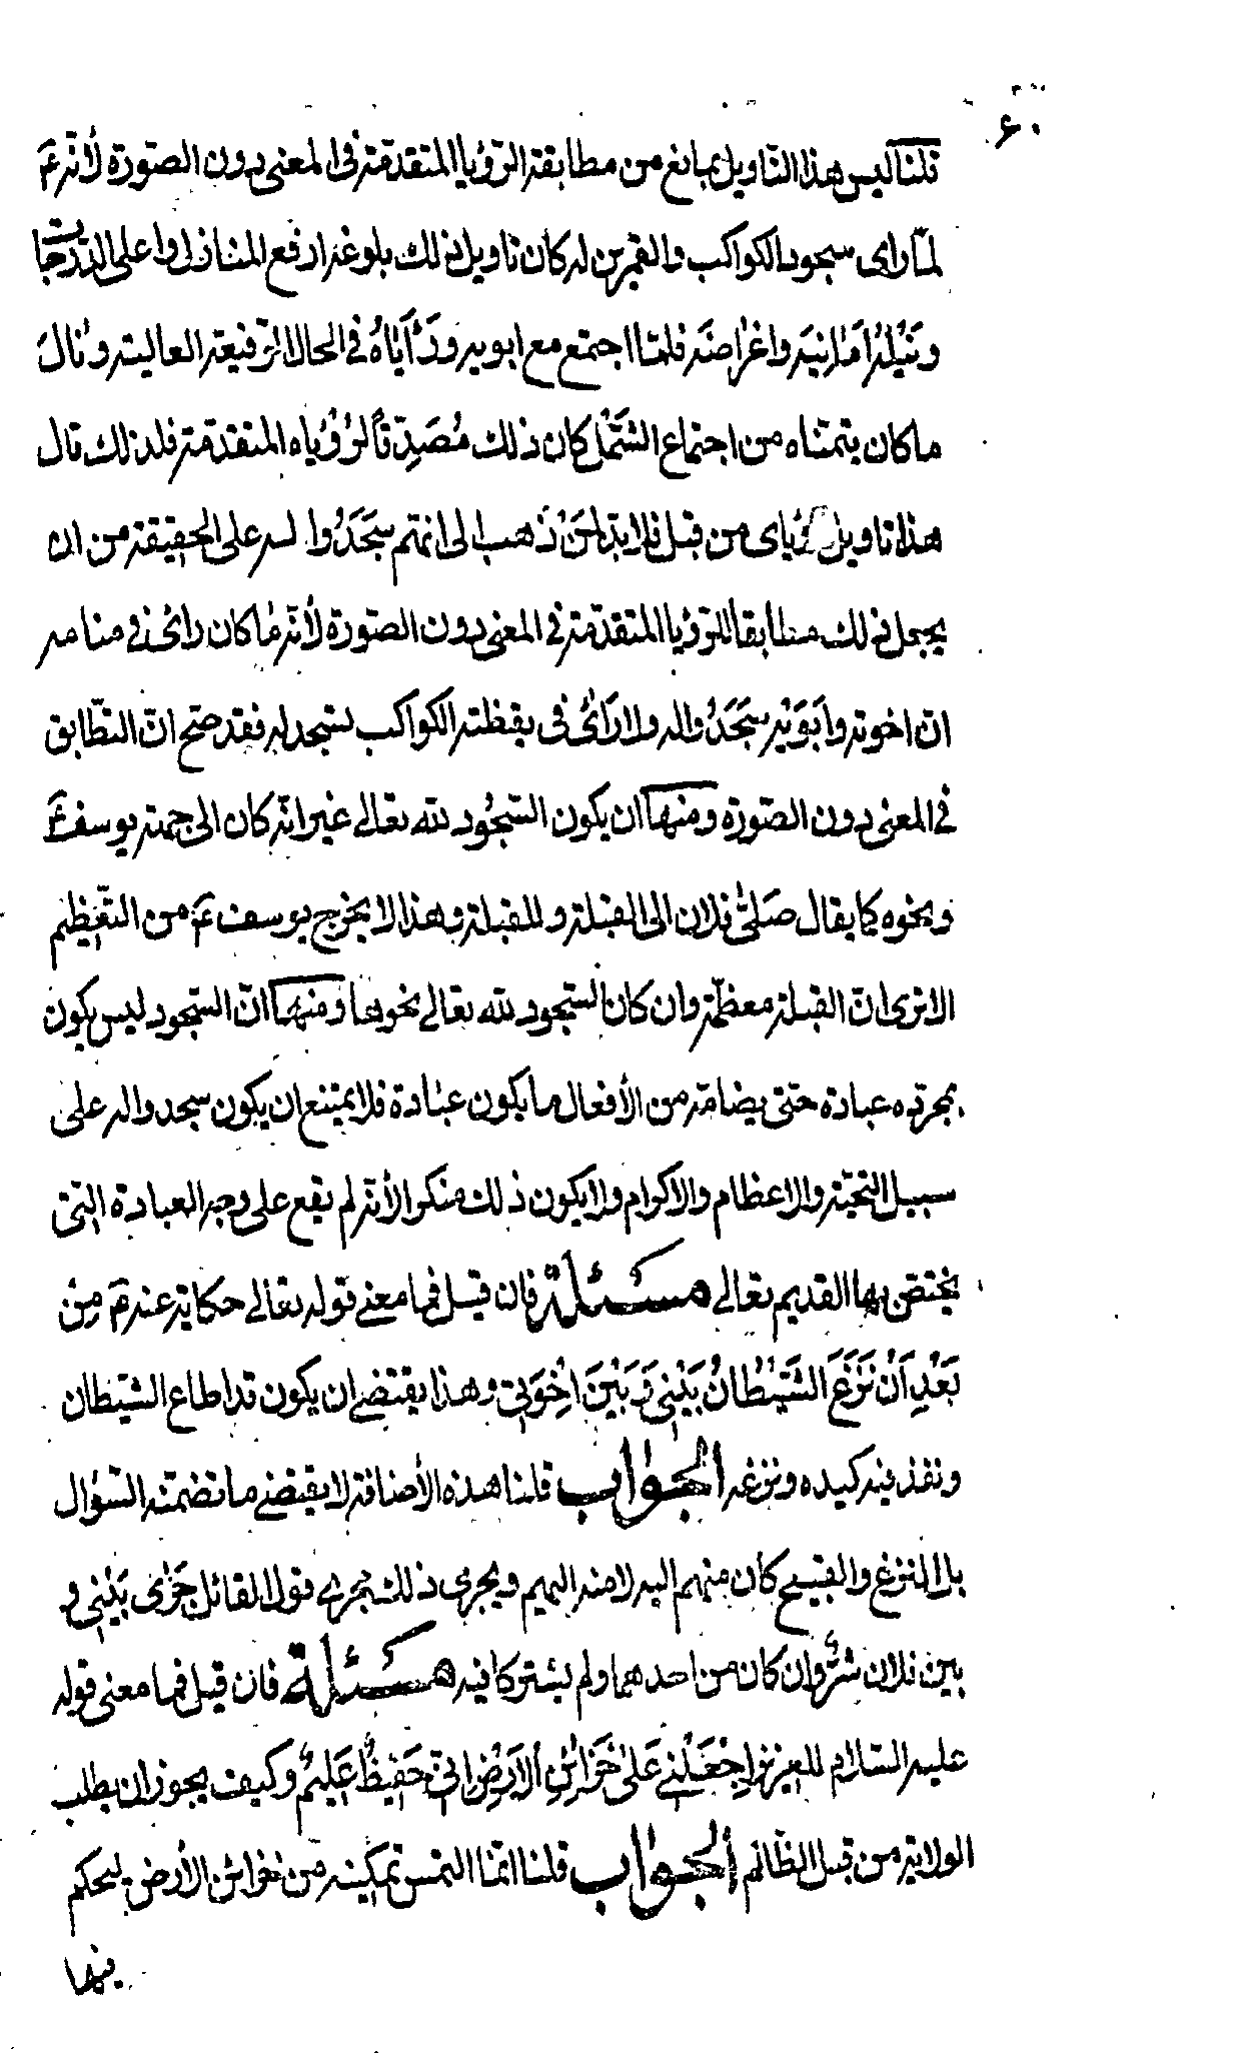 ۶۰
قلنا ليس هذا التاويل بمانع من مطابقة الرّؤيا المتقدمة فى المعنى دون الصّورة لأنّه ع
لمّا راى سجود الكواكب والقمرين له كان تاويل ذلك بلوغه ارفع المنازل واعلى الدّرجات
ونَيْلَهُ اَمٰانِيَه واغراضَه فلمّا اجتمع مع ابويه ورَأَيٰاهُ فى الحال الرّفيعة العالية ونالَ
ما كان يتمنّاه من اجتماع الشَّمْل كان ذلك مُصَدِّقاً لرُؤْياه المتقدمة فلذلك قال
هذا تاويل رؤياى من قبل فلا بدّ لمَنْ ذهب الى انهم سَجَدُوا له على الحقيقة من ان
يجعل ذلك مطابقا للرّؤيا المتقدّمة فى المعنى دون الصّورة لأنّه ما كان رأى فى منامه
انّ اخوته وابَوَيْه سجَدُوا له ولا رَأىٰ فى يقظته الكواكب تسجد له فقد صحّ انّ التطّابق
فى المعنى دون الصّورة ومنها ان يكون السّجُود لله تعالى غير انّه كان الى جهة يوسف ع
ونحوه كما يقال صَلّىٰ فلان الى القبلة وللقبلة وهذا لا يخرج يوسف ع من التّعظيم
الا ترى انّ القبلة معظّمة وان كان السّجود لله تعالى نحوها ومنها انّ السّجود ليس يكون
بمجرّده عبادة حتى يضامّه من الأفعال ما يكون عبادة فلا يمتنع ان يكون سجدوا له على
سبيل التحيّة والاعظام والاكرام ولا يكون ذلك منكرا لأنّه لم يقع على وجه العبادة التى
يختصّ بها القديم تعالى مسئلة فان قيل فما معنى قوله تعالى حكاية عنه ع مِنْ
بَعْدِ اَنْ نَزَغَ الشَّيْطانُ بَيْنى وَبَيْنَ اِخْوَتى وهذا يقتضى ان يكون قد اطاع الشّيطان
ونفذ فيه كيده ونزغه الجواب قلنا هذه الأضافة لا يقتضى ما تضمّنه السّؤال
بل النزغ والقبيح كان منهم اليه لا منه اليهم ويجرى ذلك مجرى قول القائل جَرٰى بَيْنى و
بين فلان شرٌّ وان كان من احدهما ولم يشتركا فيه مسئلة فان قيل فما معنى قوله
عليه السّلام للعزيز اِجْعَلْنى عَلىٰ خَزائِنِ الْاَرْضِ اِنّى حَفيظٌ عَليمٌ وكيف يجوز ان يطلب
الولاية من قبل الظّالم الجواب قلنا انّما التمس تمكينه من خزائن الأرض ليحكم
فيها